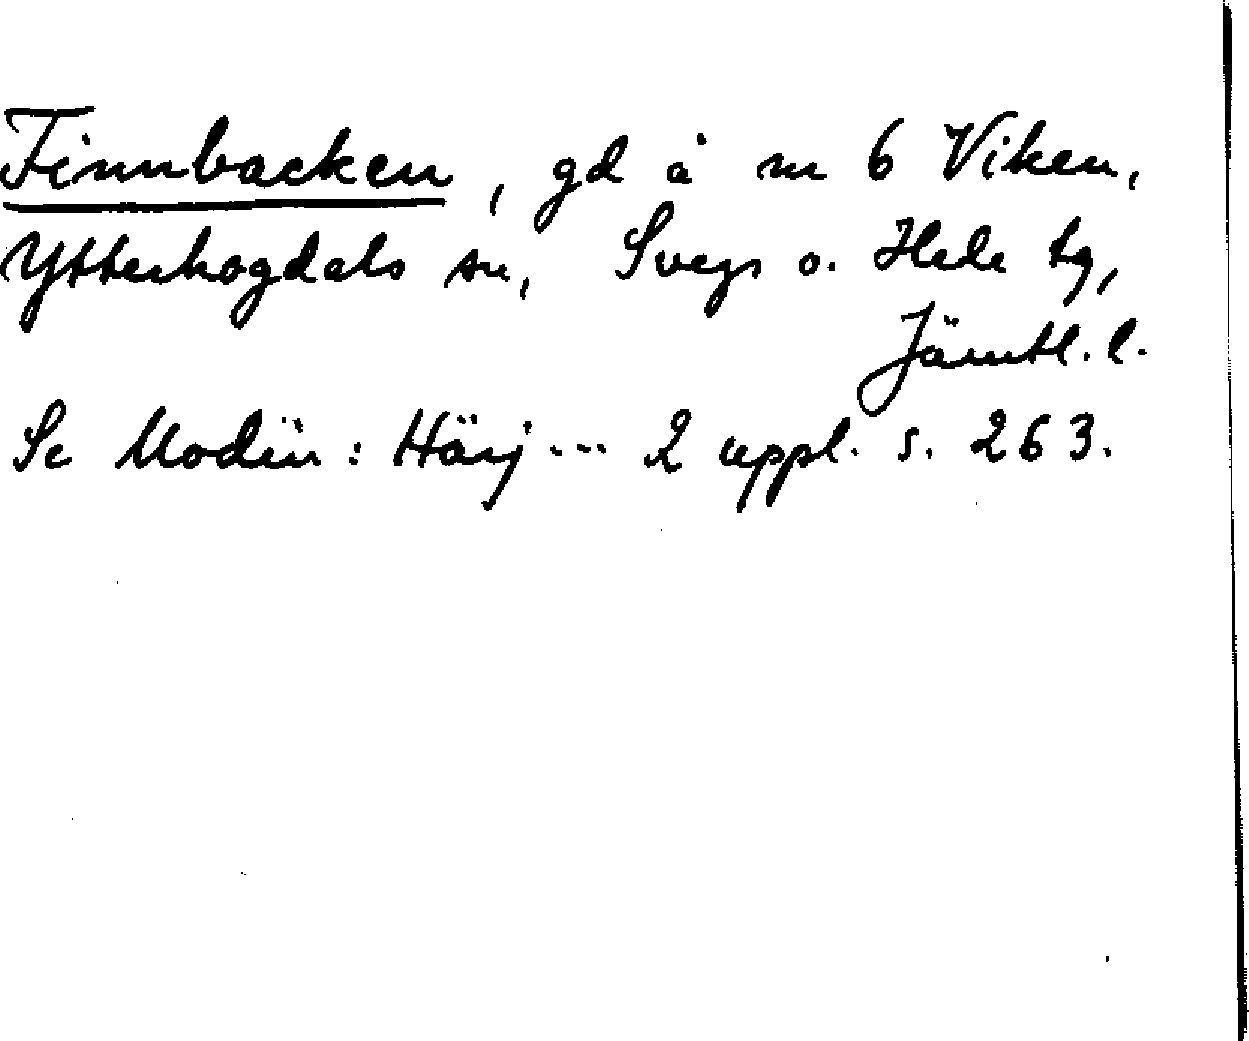 Finnbacken, gd å nr 6 Viken,
Ytterhogdals sn, Svegs o. Hede tg,
Jämtl. l.
Se Modin: Härj... 2 uppl. s. 263.